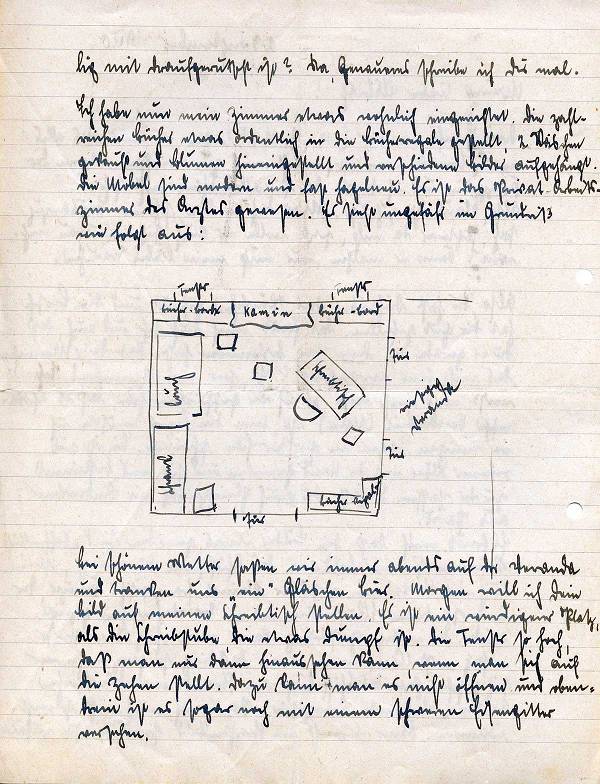 bis mit draufgerutscht ist? Na, Genaueres schreibe ich Dir mal.
Ich habe nun mein Zimmer etwas wohnlich eingerichtet. Die zahl-
reichen Bücher etwas ordentlich in die Bücherregale gestellt, 2 Väschen
gekauft und Blumen hineingestellt und verschiedene Bilder aufgehängt.
Die Möbel sind modern und fast fagelneu. Es ist das Privat-Arbeits-
zimmer des Arztes gewesen. Es sieht ungefähr im Grundriß
wie folgt aus:
Fenster
Fenster
Bücher-borte
Kamin
Bücher-bord
Tür
Couch
Schreibtisch
Veranda
Schrank
Tür
Bücher
Tür
Bei schönem Wetter saßen wir immer abends auf der Veranda
und tranken uns "ein" Gläschen Bier. Morgen will ich Dein
Bild auf meinen Schreibtisch stellen. Es ist ein würdigerer Platz,
als die Schreibstube, die etwas dumpf ist. Die Fenster so hoch,
daß man nur dann hinaussehen kann, wenn man sich auf
die Zehen stellt. Dazu kann man es nicht öffnen und oben-
drein ist es sogar noch mit einem schweren Eisengitter
versehen.